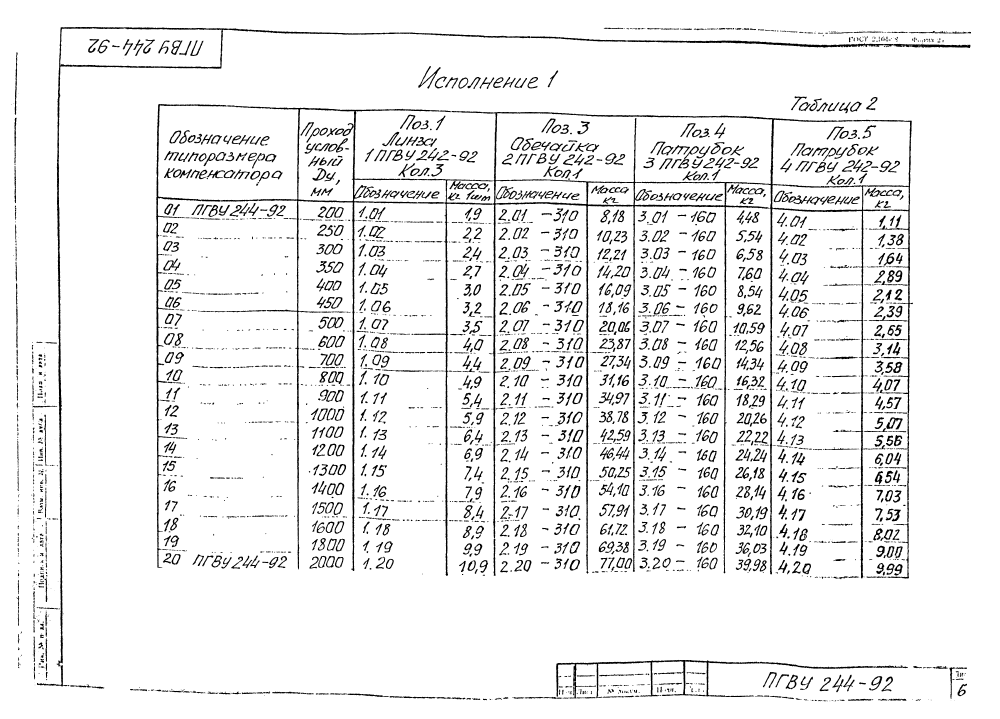 ПГВУ 244-92
ГОСТ 2.106-
Исполнение 1
Таблица 2
Обозначение типоразмера компенсатора | Проход условный Dу, мм | Поз.1 Линза 1 ПГВУ 242-92 Кол.3 | Поз. 3 Обечайка 2 ПГВУ 242-92 Кол.1 | Поз.4 Патрубок 3 ПГВУ 242-92 Кол.1 | Поз.5 Патрубок 4 ПГВУ 242-92 Кол.1
Обозначение | Масса, кг 1шт | Обозначение | Масса кг | Обозначение | Масса, кг | Обозначение | Масса, кг
01 ПГВУ 244-92 | 200 | 1.01 | 1,9 | 2.01 - 310 | 8,18 | 3.01 - 160 | 4,48 | 4.01 | 1,11
02 | 250 | 1.02 | 2,2 | 2.02 - 310 | 10,23 | 3.02 - 160 | 5,54 | 4.02 | 1,38
03 | 300 | 1.03 | 2,4 | 2.03 - 310 | 12,21 | 3.03 - 160 | 6,58 | 4.03 | 1,64
04 | 350 | 1.04 | 2,7 | 2.04 - 310 | 14,20 | 3.04 - 160 | 7,60 | 4.04 | 2,89
05 | 400 | 1.05 | 3,0 | 2.05 - 310 | 16,09 | 3.05 - 160 | 8,54 | 4.05 | 2,12
06 | 450 | 1.06 | 3,2 | 2.06 - 310 | 18,16 | 3.06 - 160 | 9,62 | 4.06 | 2,39
07 | 500 | 1.07 | 3,5 | 2.07 - 310 | 20,06 | 3.07 - 160 | 10,59 | 4.07 | 2,65
08 | 600 | 1.08 | 4,0 | 2.08 - 310 | 23,87 | 3.08 - 160 | 12,56 | 4.08 | 3,14
09 | 700 | 1.09 | 4,4 | 2.09 - 310 | 27,34 | 3.09 - 160 | 14,34 | 4.09 | 3,58
10 | 800 | 1.10 | 4,9 | 2.10 - 310 | 31,16 | 3.10 - 160 | 16,32 | 4.10 | 4,07
11 | 900 | 1.11 | 5,4 | 2.11 - 310 | 34,97 | 3.11 - 160 | 18,29 | 4.11 | 4,57
12 | 1000 | 1.12 | 5,9 | 2.12 - 310 | 38,78 | 3.12 - 160 | 20,26 | 4.12 | 5,07
13 | 1100 | 1.13 | 6,4 | 2.13 - 310 | 42,59 | 3.13 - 160 | 22,22 | 4.13 | 5,56
14 | 1200 | 1.14 | 6,9 | 2.14 - 310 | 46,44 | 3.14 - 160 | 24,24 | 4.14 | 6,04
15 | 1300 | 1.15 | 7,4 | 2.15 - 310 | 50,25 | 3.15 - 160 | 26,18 | 4.15 | 6,54
16 | 1400 | 1.16 | 7,9 | 2.16 - 310 | 54,10 | 3.16 - 160 | 28,14 | 4.16 | 7,03
17 | 1500 | 1.17 | 8,4 | 2.17 - 310 | 57,91 | 3.17 - 160 | 30,19 | 4.17 | 7,53
18 | 1600 | 1.18 | 8,9 | 2.18 - 310 | 61,72 | 3.18 - 160 | 32,10 | 4.18 | 8,02
19 | 1800 | 1.19 | 9,9 | 2.19 - 310 | 69,38 | 3.19 - 160 | 36,03 | 4.19 | 9,00
20 ПГВУ 244-92 | 2000 | 1.20 | 10,9 | 2.20 - 310 | 77,00 | 3.20 - 160 | 39,98 | 4.20 | 9,99
ПГВУ 244-92
6